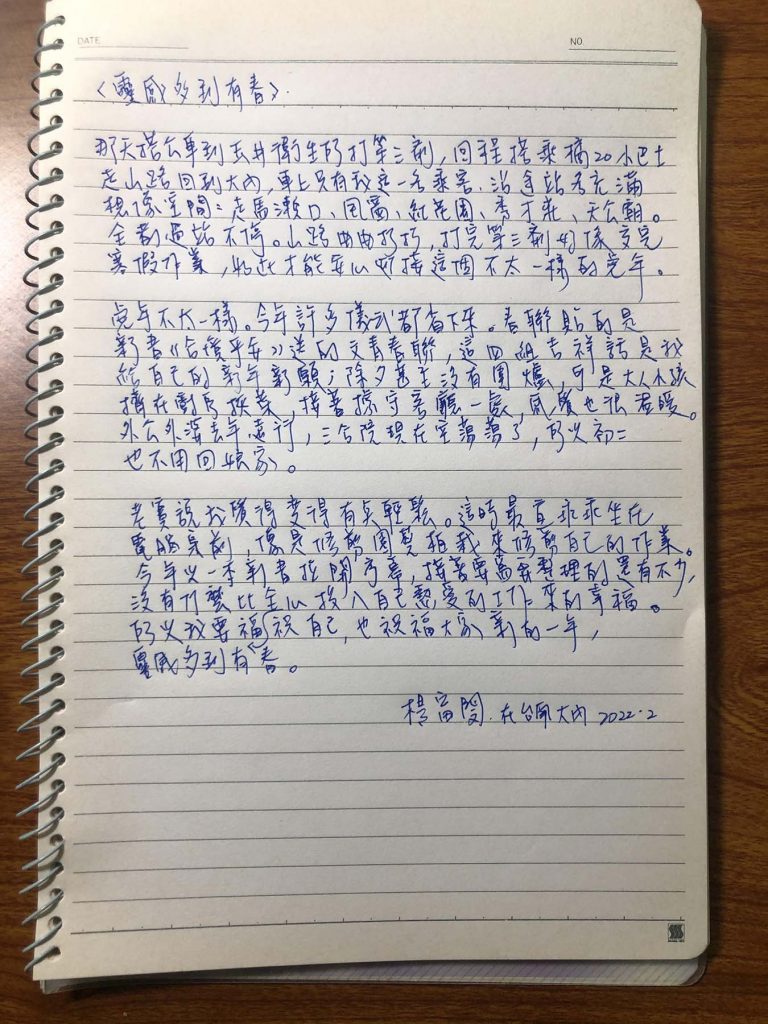 DATE
NO
〈靈感多到有春〉.
那天搭公車到玉井衛生所打第三劑，回程搭乘橘20小巴士
走山路回到大內，車上只有我這一名乘客。沿途站名充滿
想像空間：走馬瀨口、瓦窯、紅花園、秀才莊、天公廟。
全都過站不停。山路曲曲折折，打完第三劑好像交完
寒假作業，如此才能安心迎接這個不太一樣的虎年。
虎年不太一樣。今年許多儀式都省下來。春聯貼的是
新書《合境平安》送的文青春聯，這四組吉祥話是我
給自己的新年新願；除夕甚至沒有圍爐，可是大人小孩
擠在廚房挾菜，接著據守客廳一處，感覺也很溫暖。
外公外婆去年遠行，三合院現在空蕩蕩了，所以初二
也不用回娘家。
老實說我覺得變得有點輕鬆。這時最宜乖乖坐在
電腦桌前，像是修剪園藝植栽來修剪自己的作業。
今年以一本新書拉開序幕，接著要編要整理的還有不少，
沒有什麼比全心投入自己熱愛的工作來的幸福。
所以我要福祝自己，也祝福大家新的一年，
靈感多到有春。
楊富閔．在台南大內 2022.2